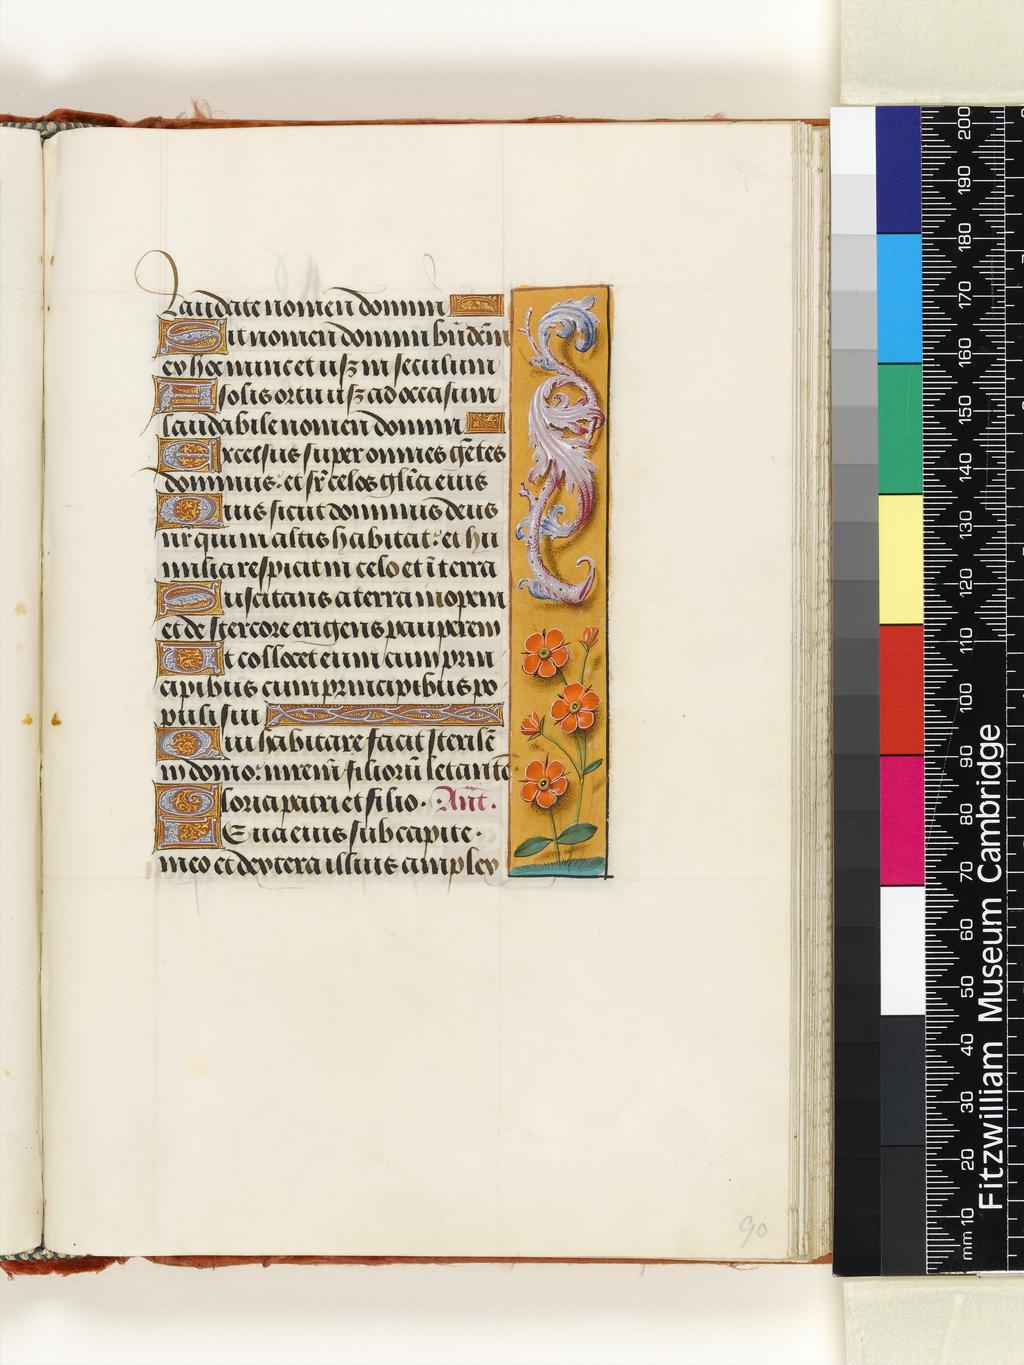 Laudate nomen domini
Sit nomen domini bñdcm̄
ex hoc nunc et usqꝫ in seculum
A solis ortu usqꝫ ad occasum
laudabile nomen domini
Excelsus super omnes gētes
dominus: et sr̄ celos glīa eius
Quis sicut dominus deus
nr̄ qui in altis habitat: et hu
milia respicit in celo et ī terra
Suscitans a terra inopem
et de stercore erigens pauperem
Et collocet eum cum prin
cipibus cum principibus po
puli sui
Qui habitare facit sterilē
in domo: mrem̄ filiorū letantē
Gloria patri et filio. Añt.
LEva eius sub capite.
meo et dextera illius amplex
90
mm 10 20 30 40 50 60 70 80 90 100 110 120 130 140 150 160 170 180 190 200
Fitzwilliam Museum Cambridge